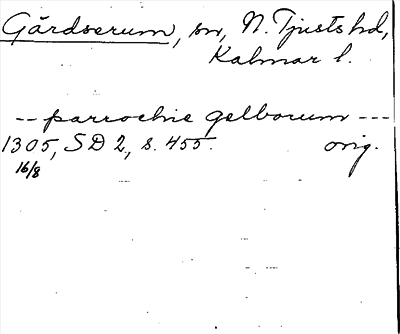 Gårdserum, sn, N. Tjusts hd,
Kalmar l.
-- parrochie gelborum ---
1305, SD 2, s. 455. orig.
16/8